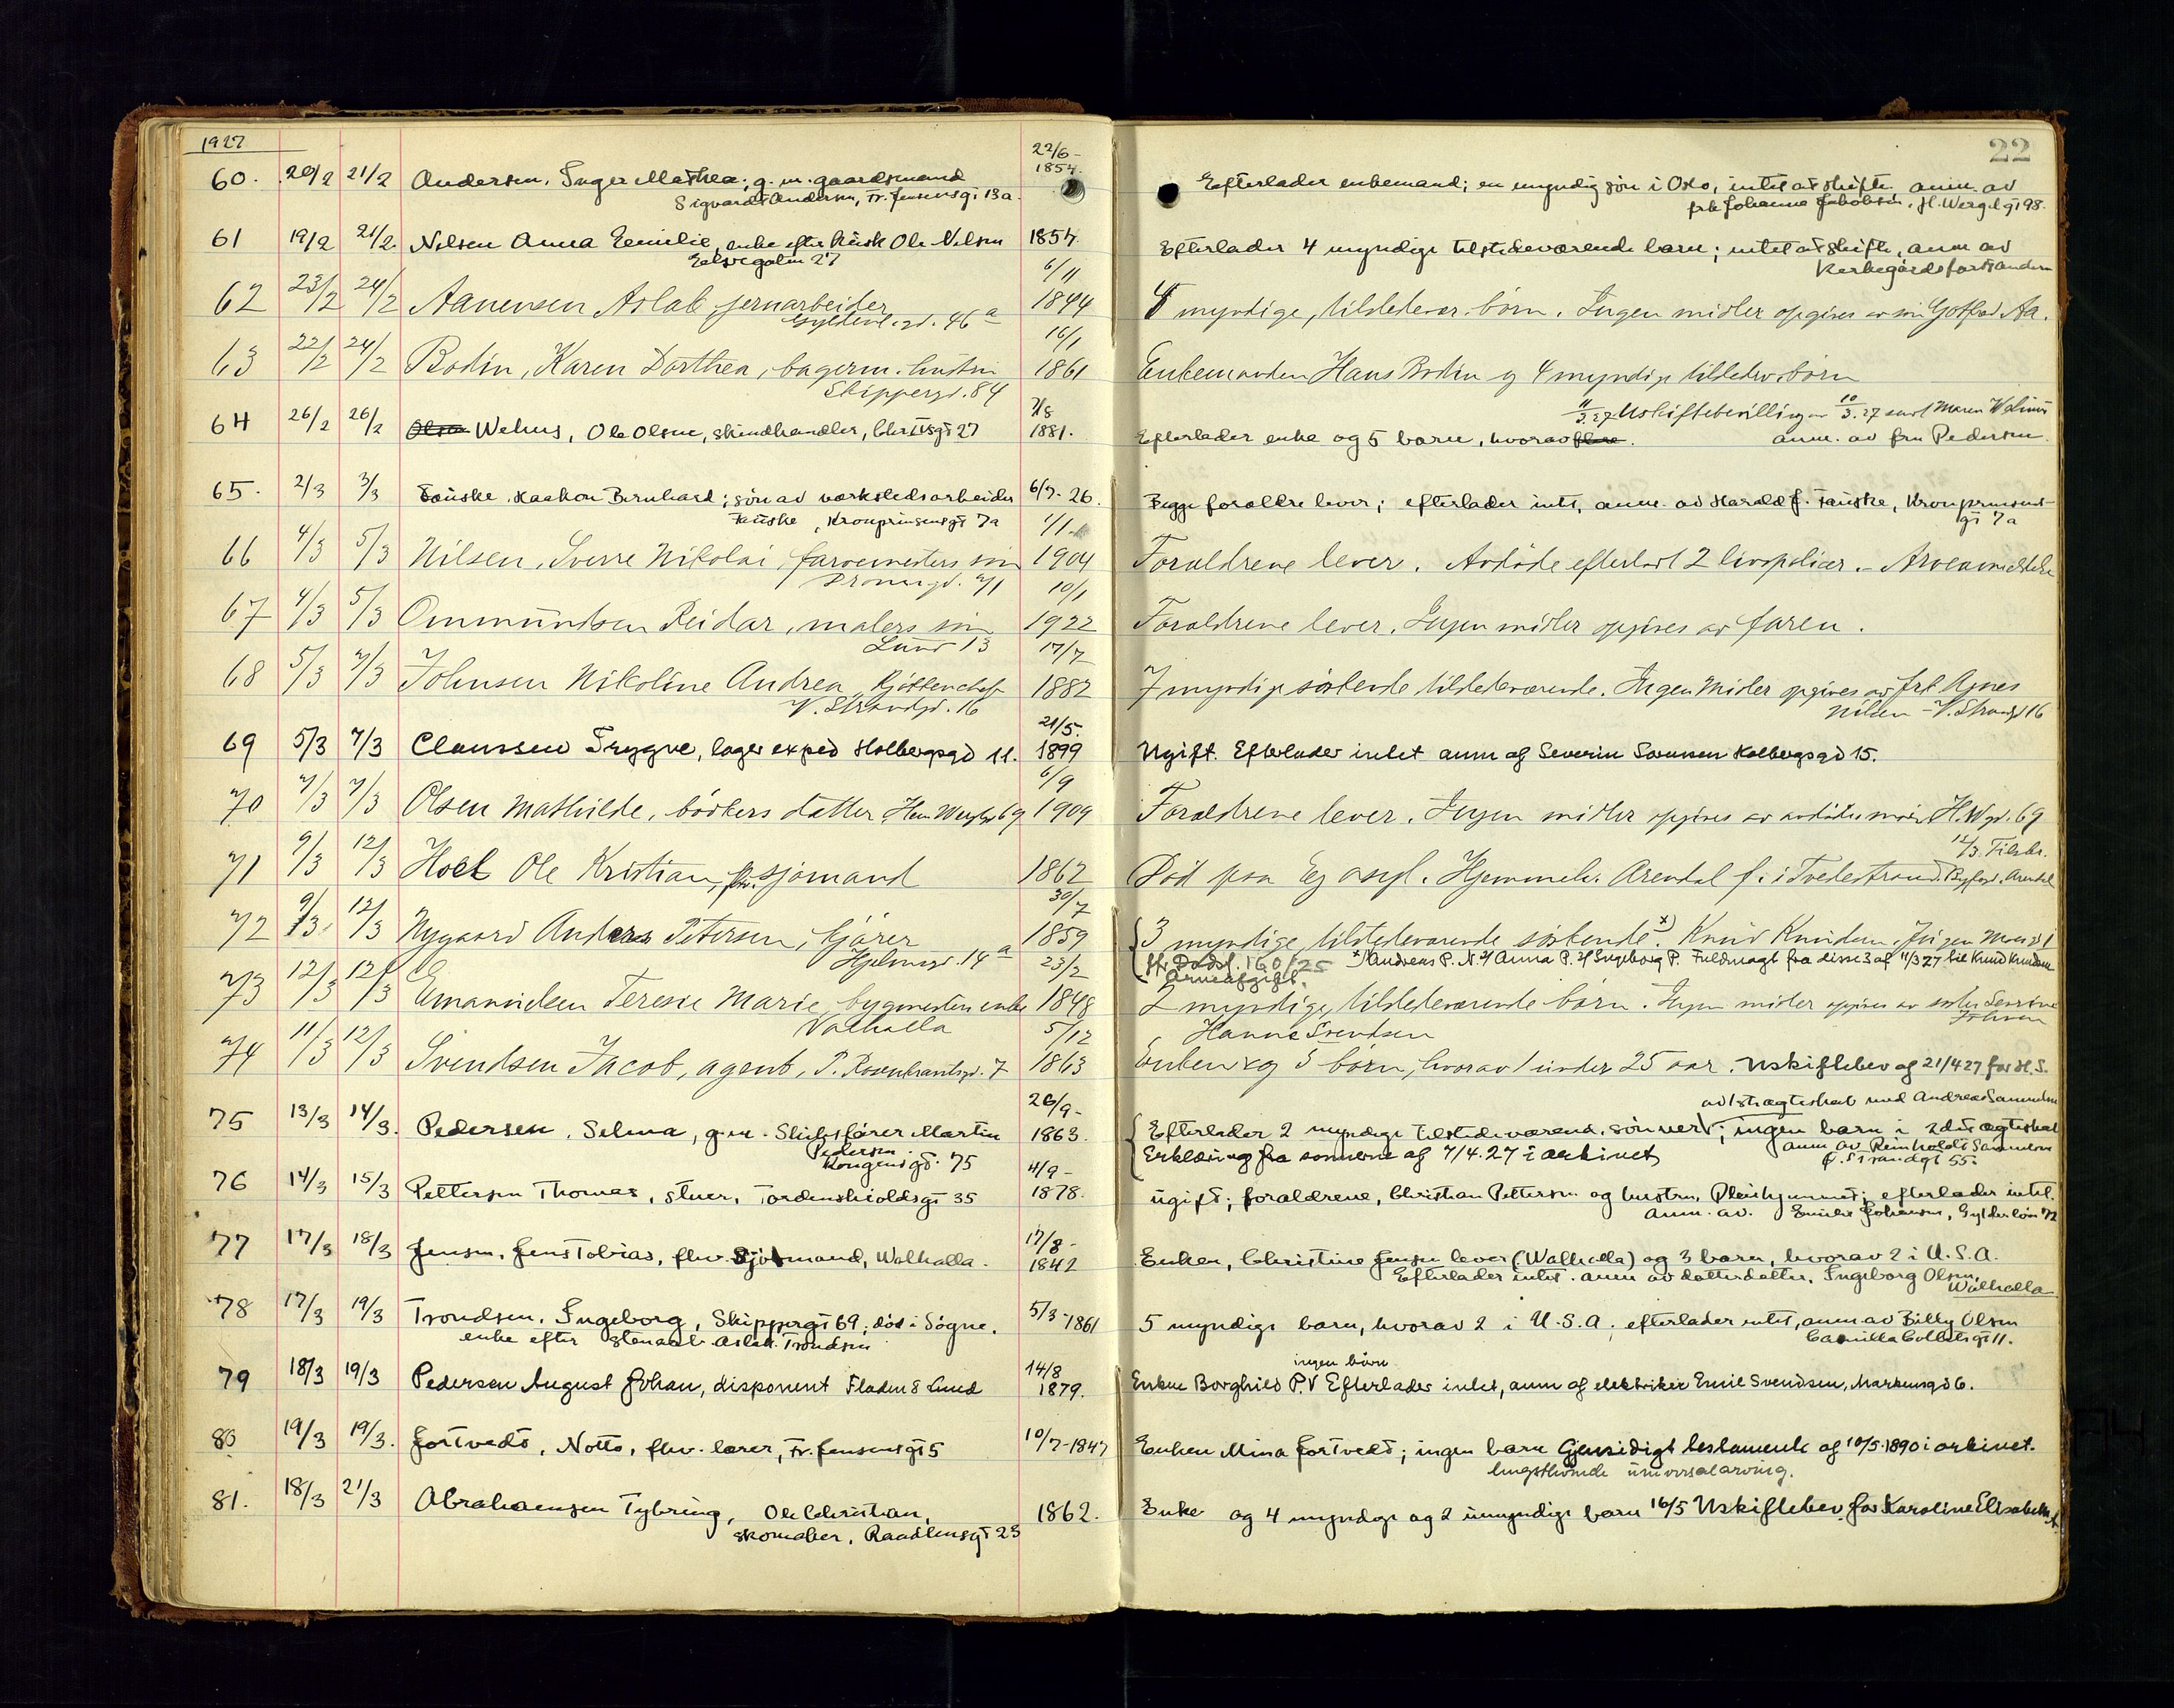 1927
22
60. 20/2 21/2 Andersen, Inger Mathea; g. m. gaardsmand 22/6- 1854. Efterlader enkemand; en myndig søn i Oslo, intet at skifte, anm. av
Sigvardt Andersen, Fr. Jensensgt 13a. frk Johanne Jakobsen, H. Wergel gt 98.
61 19/2 21/2. Nilsen Anna Emilie, enke efter kusk Ole Nilsen 1854. Efterlader 4 myndige tilstedeværende barn; intet at skifte, anm av
Elvegaten 27 Kirkegårdsforstanderen
62 23/2 24/2 Aanensen Aslak, jernarbeider 6/11 1844 4 myndige, tilstedevær. børn. Ingen midler opgives av søn Gotfred Aa.
Gyldenl. gd. 46a
63 22/2 24/2 Bodin, Karen Dorthea, bagerm. hustru 16/1 1861 Enkemanden Hans Bodin og 4 myndige tilstedev. børn
Skippergd. 84
11/3.27 Uskiftebevilling 10/3.27 Maren Wehus
64 26/2 26/2 Olsen Wehus, Ole Olsen, skindhandler, Chr.IVsgt 27 7/8 1881. Efterlader enke og 5 barn, hvorav flere. anm. av fru Pedersen.
65. 2/3 3/3 Fauske, Haakon Bernhard; søn av verkstedsarbeider 6/7-26. Begge forældre lever; efterlader intet, anm. av Harald J. Fauske, Kronprinsens-
Fauske, Kronprinsensgt 7a gt 7a
66 4/3 5/3 Nilsen, Sverre Nikolai, farvemesters søn 1/1- 1904 Forældrene lever. Avdøde efterlod 2 livspolicer. -
Dronngd. 71
67 4/3 5/3 Ommundsen Reidar, malers søn 10/1 1922 Forældrene lever. Ingen midler opgives av faren.
Lund 13
68 5/3 7/3 Johnsen Nikoline Andrea, 17/7 1882 7 myndige søskende tilstedeværende. Ingen Midler opgives av frk Agnes
V. Strandgd. 16 Nilsen - V. Strandgd 16
69 5/3 7/3 Claussen Trygve, lagerexped Holbergsgd 11. 21/5. 1899 Ugift. Efterlader intet anm af Severin Sørensen Holbergsgd 15.
70 7/3 7/3 Olsen Mathilde, bødkers datter, Hen Werglgd 69 6/9 1909 Forældrene lever. Ingen midler opgives av avdødes mor, H.W.gd. 69
12/3. Tilskr.
71 9/3 12/3 Hoel Ole Kristian, fhv. sjømand 1862 Død paa Eg asyl. Hjemmeh. Arendal f. i Tvedestrand. Byfogd. Arendal
72 9/3 12/3 Nygaard Anders Petersen, kjører 30/7 1859 3 myndige, tilstedeværende søskende x). Knud Knudsen,
Hjelmsgd. 14a jfr. Dødsf. 160/25 x) Andreas P. N. 2/ Anna P. 3/ Ingeborg P. Fuldmagt fra disse 3 af 11/3 27 til Knud Knudsen
Arveafgift.
73 12/3 12/3 Emanuelsen Teresie Marie, bygmesters enke 23/2 1848 2 myndige, tilstedeværende børn. Ingen midler opgives av
Valhalla Johnsen
Hanne Svendsen
74 11/3 12/3 Svendsen Jacob, agent, P. Rosenkrantzgd. 7 5/12 1863 Enken og 5 børn, hvorav 1 under 25 aar. Uskiftebev af 21/4 27 for H. S.
av 1st ægteskab med Andreas Samuelsen
75 13/3 14/3. Pedersen, Selma, g.m. Skibsfører Martin 26/9- 1863. Efterlader 2 myndige tilstedeværend. sønner; ingen barn i 2det ægteskab
Pedersen Kongensgt. 75 Erklæring fra sønnerne af 7/4.27 i arkivet anm av Reinholdt Samuelsen
Ø. Strandgt 55.
76 14/3 15/3 Pettersen Thomas, stuer, Tordenskioldsgt 35 4/9- 1878. ugift; forældrene, Christian Pettersen og hustru, Pleiehjemmet; efterlader intet.
anm. av. Emilie Johansen, Gyldenløv 72
77 17/3 18/3 Jensen, Jens Tobias, fhv. Sjømand, Walhalla. 17/8- 1842 Enken, Christine Jensen lever (Walhalla) og 3 barn, hvorav 2 i U.S.A.
Efterlader intet. anm av datterdatter, Ingeborg Olsen, Walhalla
78 17/3 19/3 Trondsen, Ingeborg, Skippergt 69; død i Søgne. 5/3-1861 5 myndige barn, hvorav 2 i U.S.A. efterlader intet, anm av Billy Olsen
enke efter Aslak Trondsen Camilla Collets gt 11.
ingen børn
79 18/3 19/3 Pedersen August Johan, disponent Fladen 8 Lund 14/8 1879. Enken Borghild P. V Efterlader intet, anm af elektriker Emil Svendsen, Markensgd 6.
80 19/3 19/3. Jortveds, Notto, fhv. lærer, Fr. Jensensgt 5 10/7-1847 Enken Mina Jortveds; ingen barn Gjensidigt testamente af 10/5.1890 i arkivet.
lengstlevende universalarving.
81. 18/3 21/3 Abrahamsen Tybring, Ole Christian, 1862. Enke og 4 myndige og 2 umyndige barn 16/5 Uskiftebev. for Karoline Elisabeth A.
skomaker, Raadhusgt 23